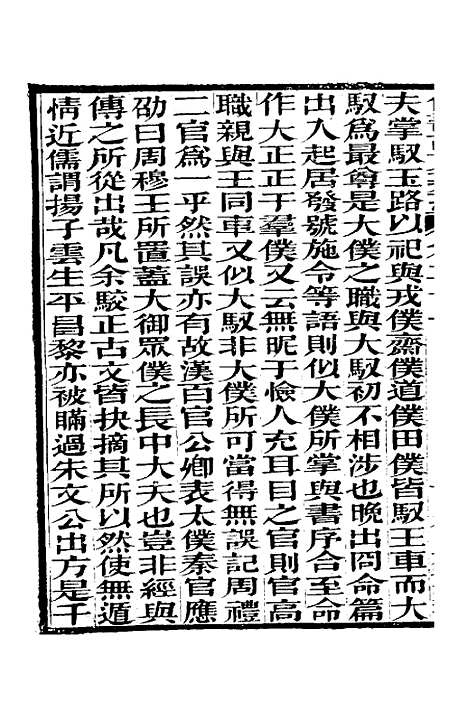 夫掌馭玉路以祀與戎僕齋僕道僕田僕皆馭王車而大
馭爲最尊是大僕之職與大馭初不相涉也晚出冏命篇
出入起居發號施令等語則似大僕所掌與書序合至命
作大正正于羣僕又云無昵于憸人充耳目之官則官高
職親與王同車又似大馭非大僕所可當得無誤記周禮
二官爲一乎然其誤亦有故漢百官公卿表太僕秦官應
劭曰周穆王所置蓋大御眾僕之長中大夫也豈非經與
傳之所從出哉凡余駁正古文皆抉摘其所以然使無遁
情近儒謂揚子雲生平昌黎亦被瞞過朱文公出方是千